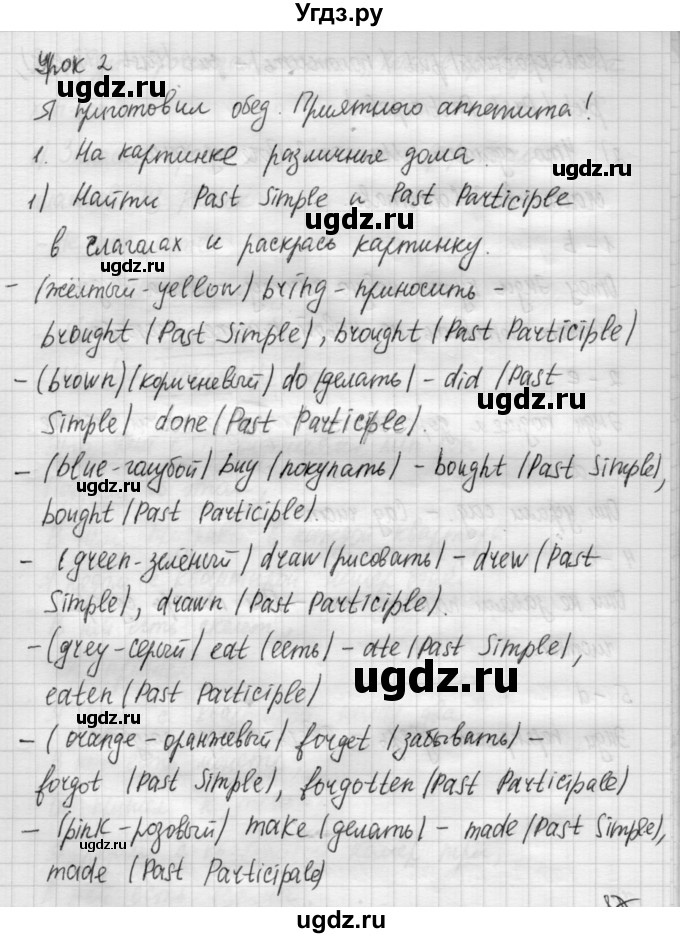 Угдз.ру
Урок 2
ugdz.ru
Я приготовил обед. Приятного аппетита!
ugdz.ru
1. На картинке различные дома.
1) Найти Past Simple и Past Participle
ugdz.ru
в глаголах и раскрась картинку.
ugdz.ru
- (жёлтый-yellow) bring - приносить -
brought (Past Simple), brought (Past Participle)
- (brown) (коричневый) do (делать) - did (Past
ugdz.ru
Simple) done (Past Participle).
- (blue-голубой) buy (покупать) - bought (Past Simple),
ugdz.ru
bought (Past Participle).
- (green-зелёный) draw (рисовать) - drew (Past
Simple), drawn (Past Participle).
- (grey-серый) eat (есть) - ate (Past Simple),
ugdz.ru
eaten (Past Participle)
ugdz.ru
- (orange-оранжевый) forget (забывать) -
forgot (Past Simple), forgotten (Past Participale)
- (pink-розовый) make (делать) - made (Past Simple),
ugdz.ru
made (Past Participale)
ugdz.ru